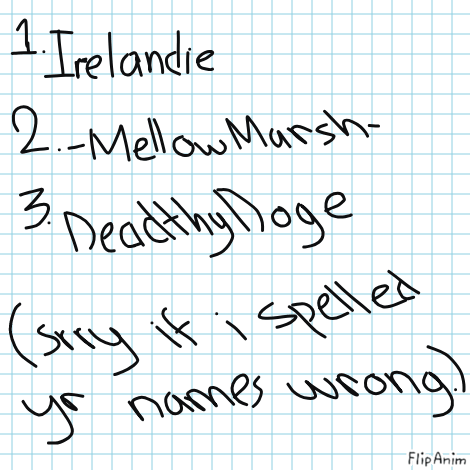 1. Irelandie
2. -MellowMarsh-
3. DeadthyDoge
(srry if i spelled
yr names wrong.)
FlipAnim